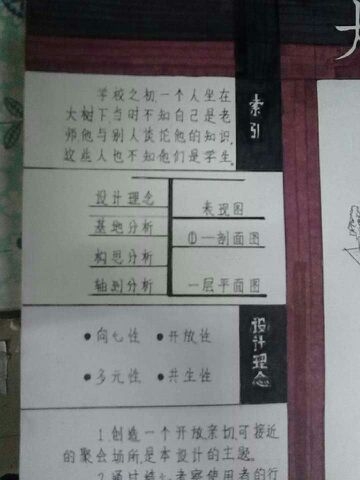 学校之初,一个人坐在
大树下,当时不知自己是老
师他与别人谈论他的知识,
这些人也不知他们是学生
索引
设计理念
基地分析
构思分析
轴测分析
表现图
①—剖面图
一层平面图
设计理念
•向心性 •开放性
•多元性 •共生性
1.创造一个开放,亲切,可接近
的聚会场所是本设计的主题。
2.通过 考察使用者的行